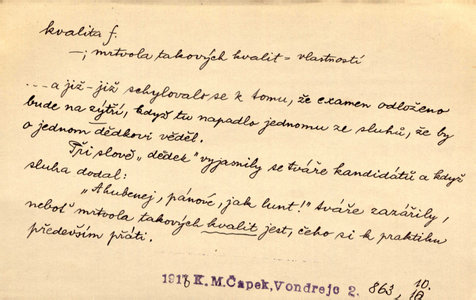 kvalita f.
—; mrtvola takových kvalit = vlastností
... a již-již schylovalo se k tomu, že examen odloženo
bude na zýtří, když tu napadlo jednomu ze sluhů, že by
o jednom dědkovi věděl.
Při slově „dědek" vyjasnily se tváře kandidátů a když
sluha dodal:
„A hubenej, pánové, jak lunt!" tváře zazářily,
neboť mrtvola takových kvalit jest, čeho si k praktiku
především přáti.
1916 K. M. Čapek, Vondrejc 2. 863, 10.
10